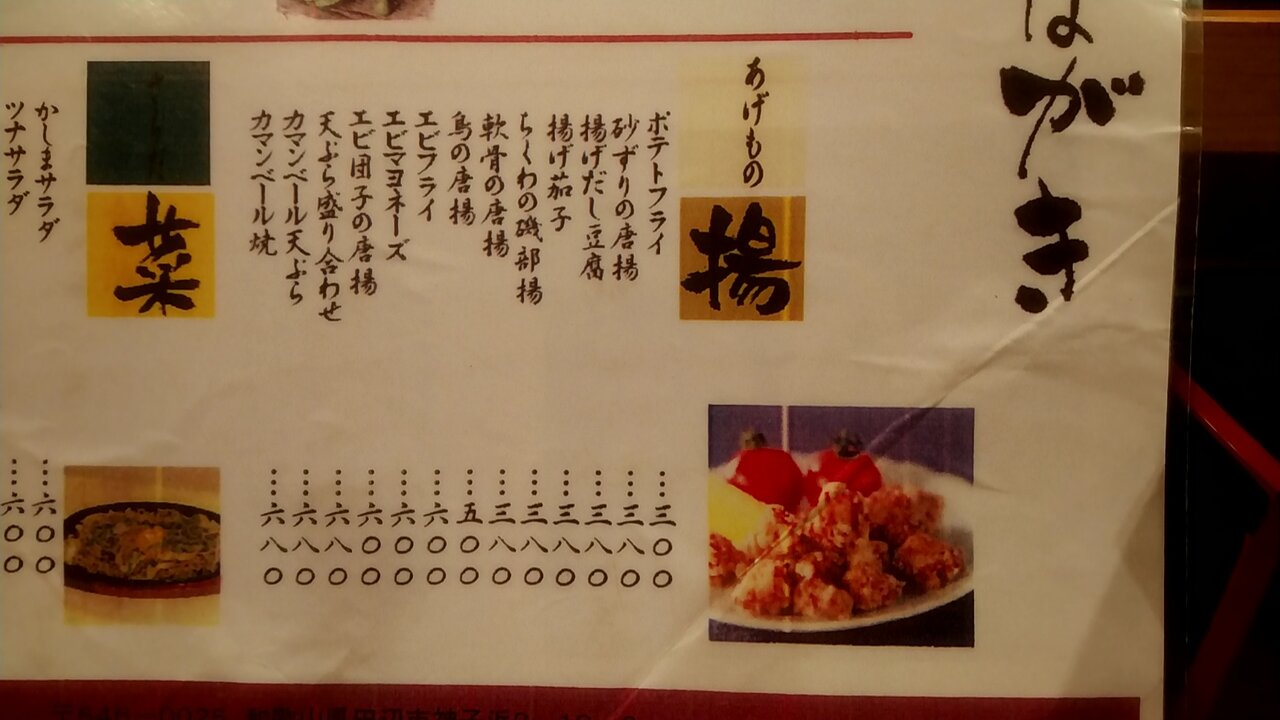 はがき
あげもの
揚
ポテトフライ……三〇〇
砂ずりの唐揚……三八〇
揚げだし豆腐……三八〇
揚げ茄子……三八〇
ちくわの磯部揚……三八〇
軟骨の唐揚……三八〇
鳥の唐揚……五〇〇
エビフライ……六〇〇
エビマヨネーズ……六〇〇
エビ団子の唐揚……六〇〇
天ぷら盛り合わせ……六八〇
カマンベール天ぷら……六八〇
カマンベール焼……六八〇
菜
かしまサラダ……六〇〇
ツナサラダ……六〇〇